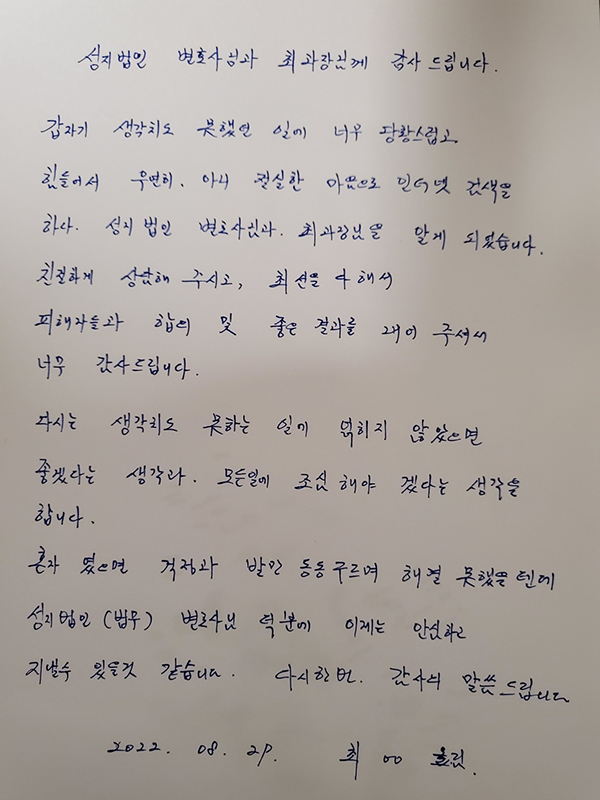 성지법인 변호사님과 최과장님께 감사 드립니다.
갑자기 생각치도 못했던 일에 너무 당황스럽고
힘들어서 우연히. 아니 절실한 마음으로 인터넷 검색을
하다. 성지법인 변호사님과. 최과장님을 알게 되었습니다.
친절하게 상담해 주시고, 최선을 다해서
피해자들과 합의 및 좋은 결과를 내어 주셔서
너무 감사드립니다.
다시는 생각치도 못하는 일에 얽히지 않았으면
좋겠다는 생각과. 모든일에 조심해야 겠다는 생각을
합니다.
혼자 였으면 걱정과 발만 동동구르며 해결 못했을텐데
성지법인 (법무) 변호사님 덕분에 이제는 안심하고
지낼수 있을것 같습니다. 다시한번. 감사의 말씀드립니다
2022. 08. 29. 최 00 올림.